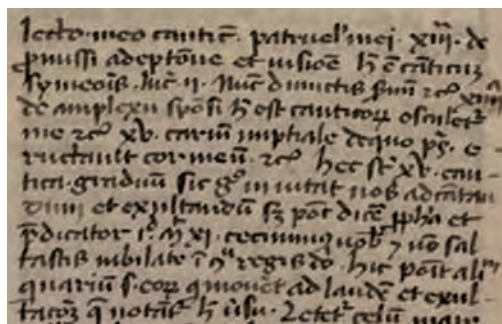 lecto meo cantic̄. patruel' mei. xiii. de
ꝓmissi adeptōne et visiōe h̄ ē cāticū
symeōis. luc̄. ii. Nūc dimictis ẜuū ⁊c̄ xiiii
de amplexu spōsi h̄ est canticoꝝ osculet̉
me ⁊c̄ xv. carmē nuptiale de quo p̄s. e
ructauit cor meū. ⁊c̄ hec st̄ xv. can
tica. graduū sic g° inuitat nos ad cātan
dum et exultandū sꝫ pōt dicē ꝓph̄a et
p̄dicator mͭ xi. cecinimus uob̄ ⁊ nō sal
tastis iubilate ī regis dō. hic pōit ali
quariū s. eoꝝ q mouēt ad laudē et exul
tacōꝫ notāt̉ h̄ Letet̉ celū